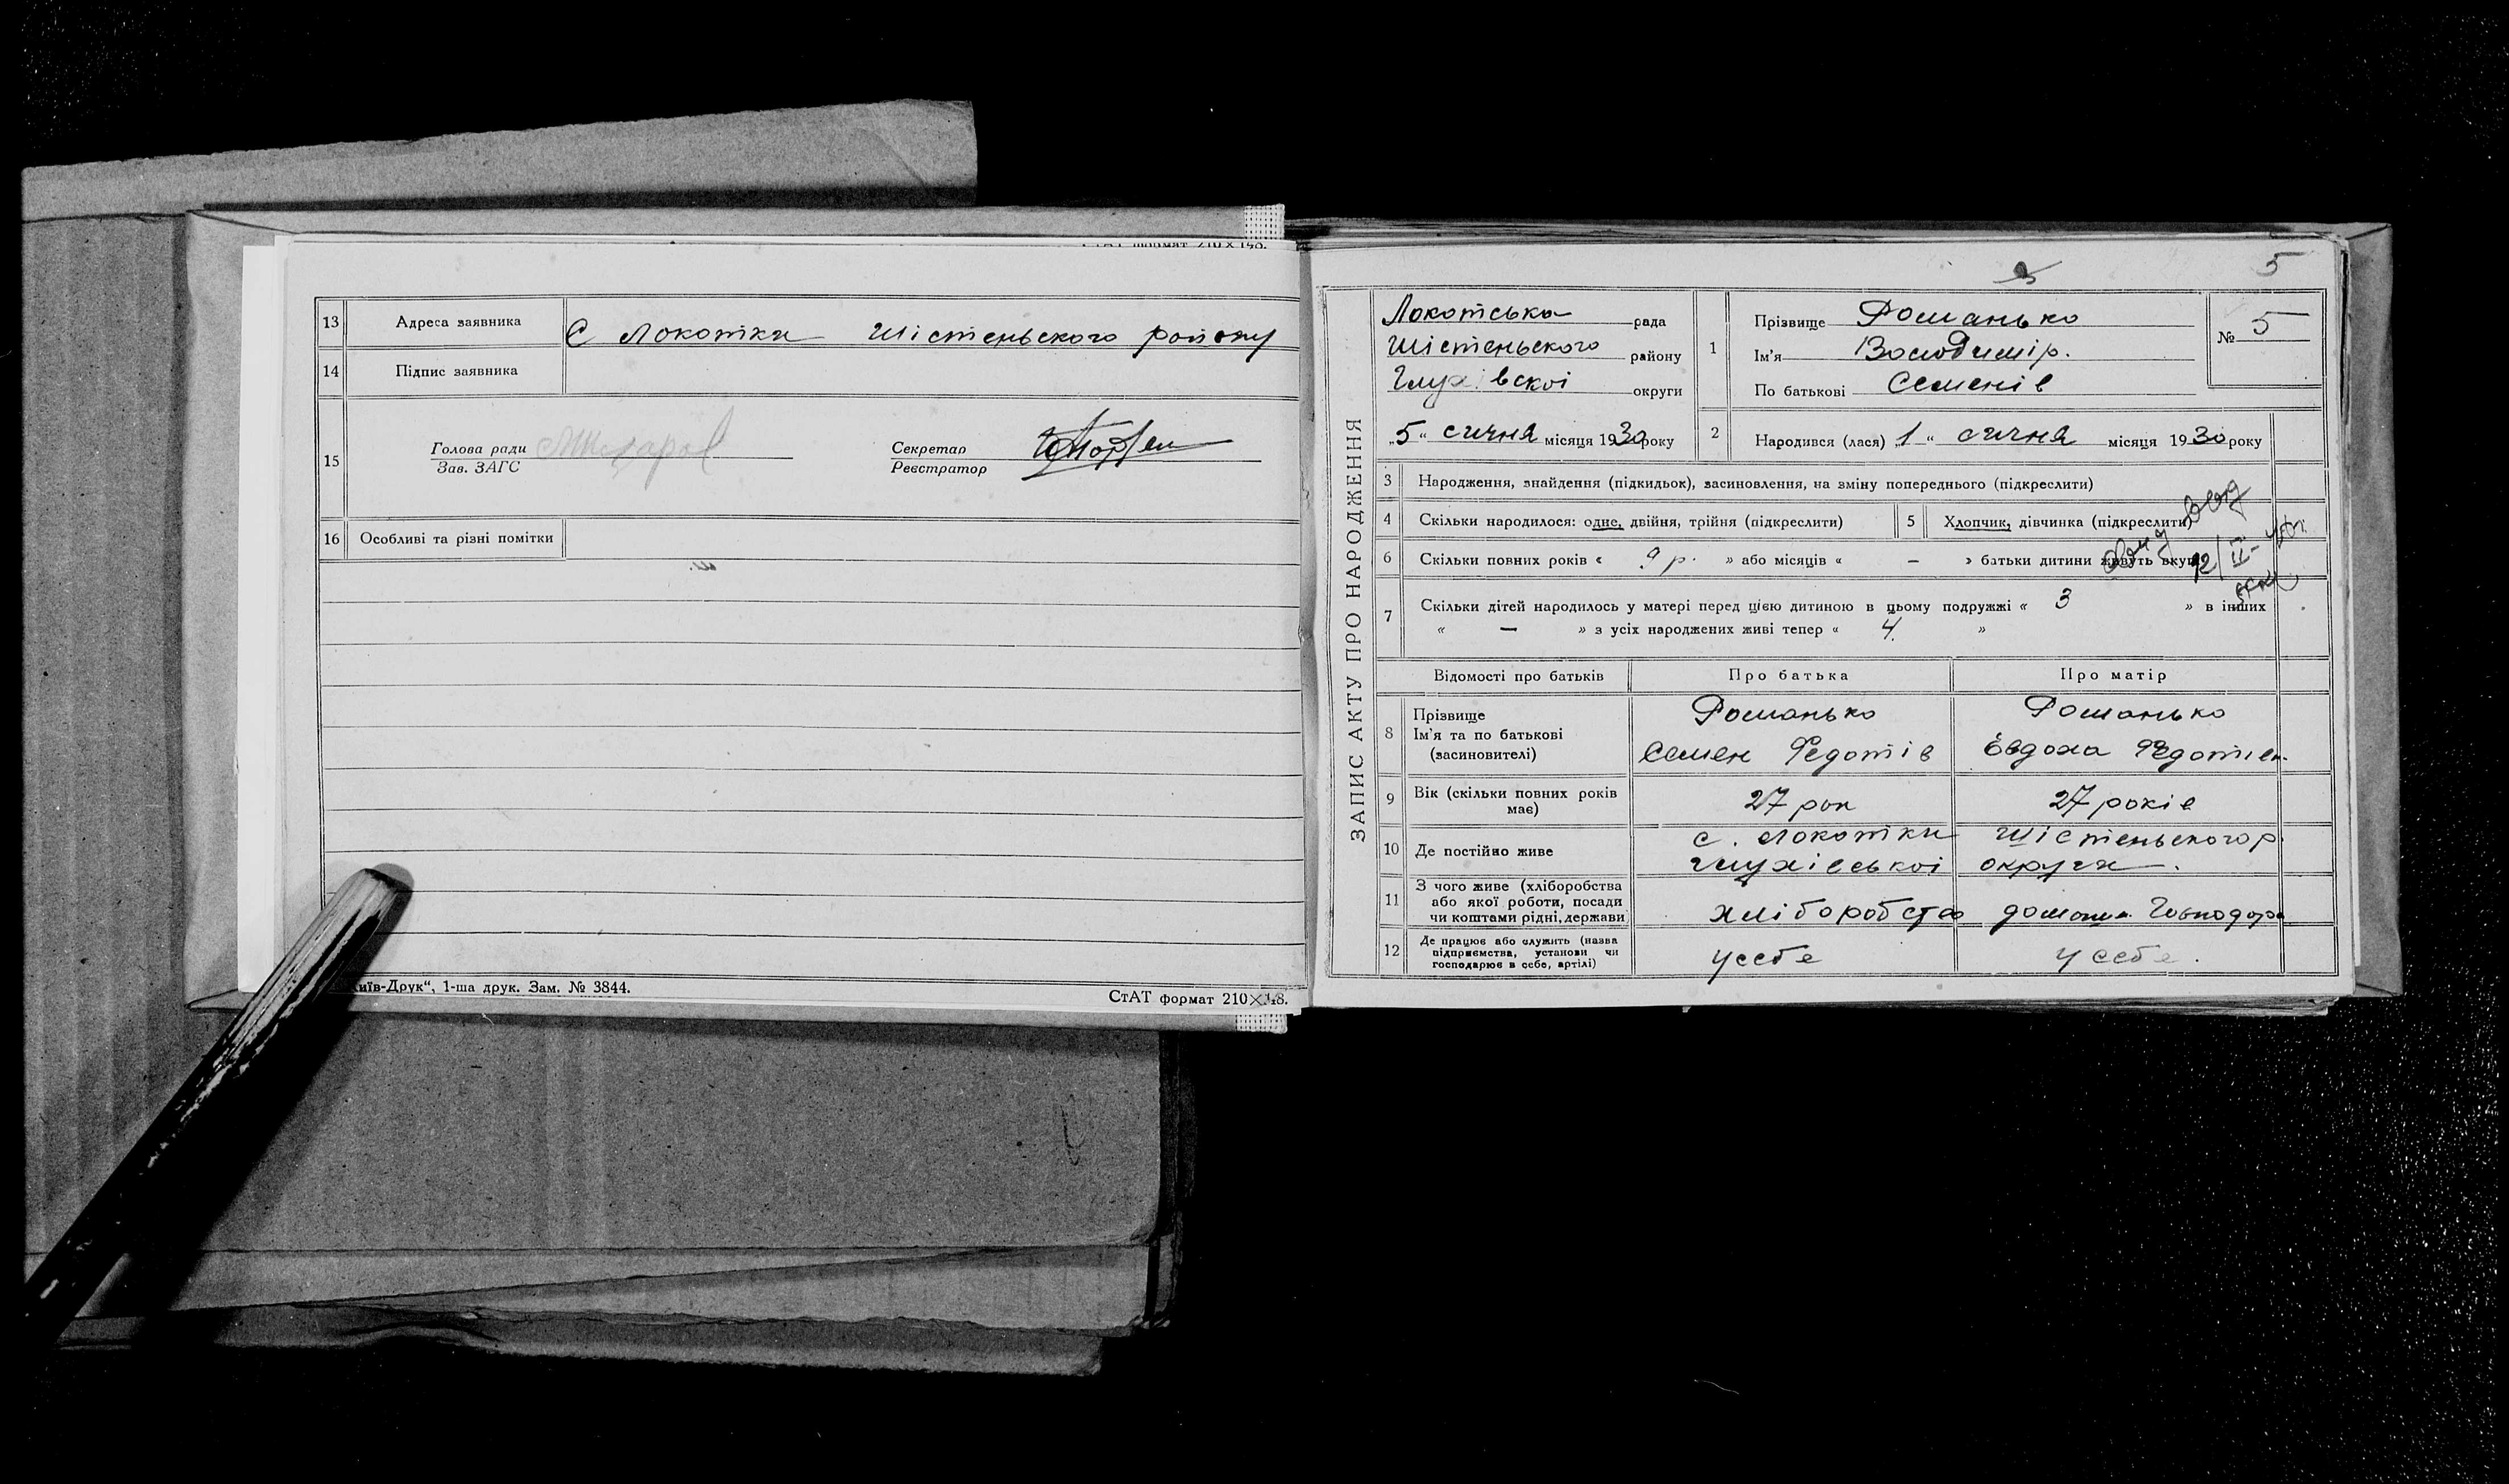 СтАТ формат 210×148.
13 Адреса заявника С Локотки Шістеньского району
14 Підпис заявника
15 Голова ради
Зав. ЗАГС
Секретар
Реєстратор
16 Особливі та різні помітки
"Київ-Друк", 1-ша друк. Зам. № 3844.
СтАТ формат 210×148.
5
ЗАПИС АКТУ ПРО НАРОДЖЕННЯ
Локотська рада
Шістеньского району
Глухівскої округи
„5“ січня місяця 1930 року
1 Прізвище Романько
Ім'я Володимір.
По батькові Семенів
№ 5
2 Народився (лася) „1“ січня місяця 1930 року
3 Народження, знайдення (підкидьок), засиновлення, на зміну попереднього (підкреслити)
4 Скільки народилося: одне, двійня, трійня (підкреслити) 5 Хлопчик, дівчинка (підкреслити)
6 Скільки повних років « 9 р. » або місяців « – » батьки дитини живуть вкупі
12/II-
7 Скільки дітей народилось у матері перед цією дитиною в цьому подружжі « 3 » в інших
« – » з усіх народжених живі тепер « 4. »
Відомості про батьків Про батька Про матір
8 Прізвище Романько Романько
Ім'я та по батькові Семен Федотів Євдоха Федотіен.
(засиновителі)
9 Вік (скільки повних років має) 27 рок 27 років
10 Де постійно живе с. Локотки Шістеньского р.
Глухівської округи.
11 З чого живе (хліборобства
або якої роботи, посади
чи коштами рідні, держави) хліборобство домашн. Господар
12 Де працює або служить (назва
підприємства, установи чи
господарює в себе, артілі) у себе у себе.